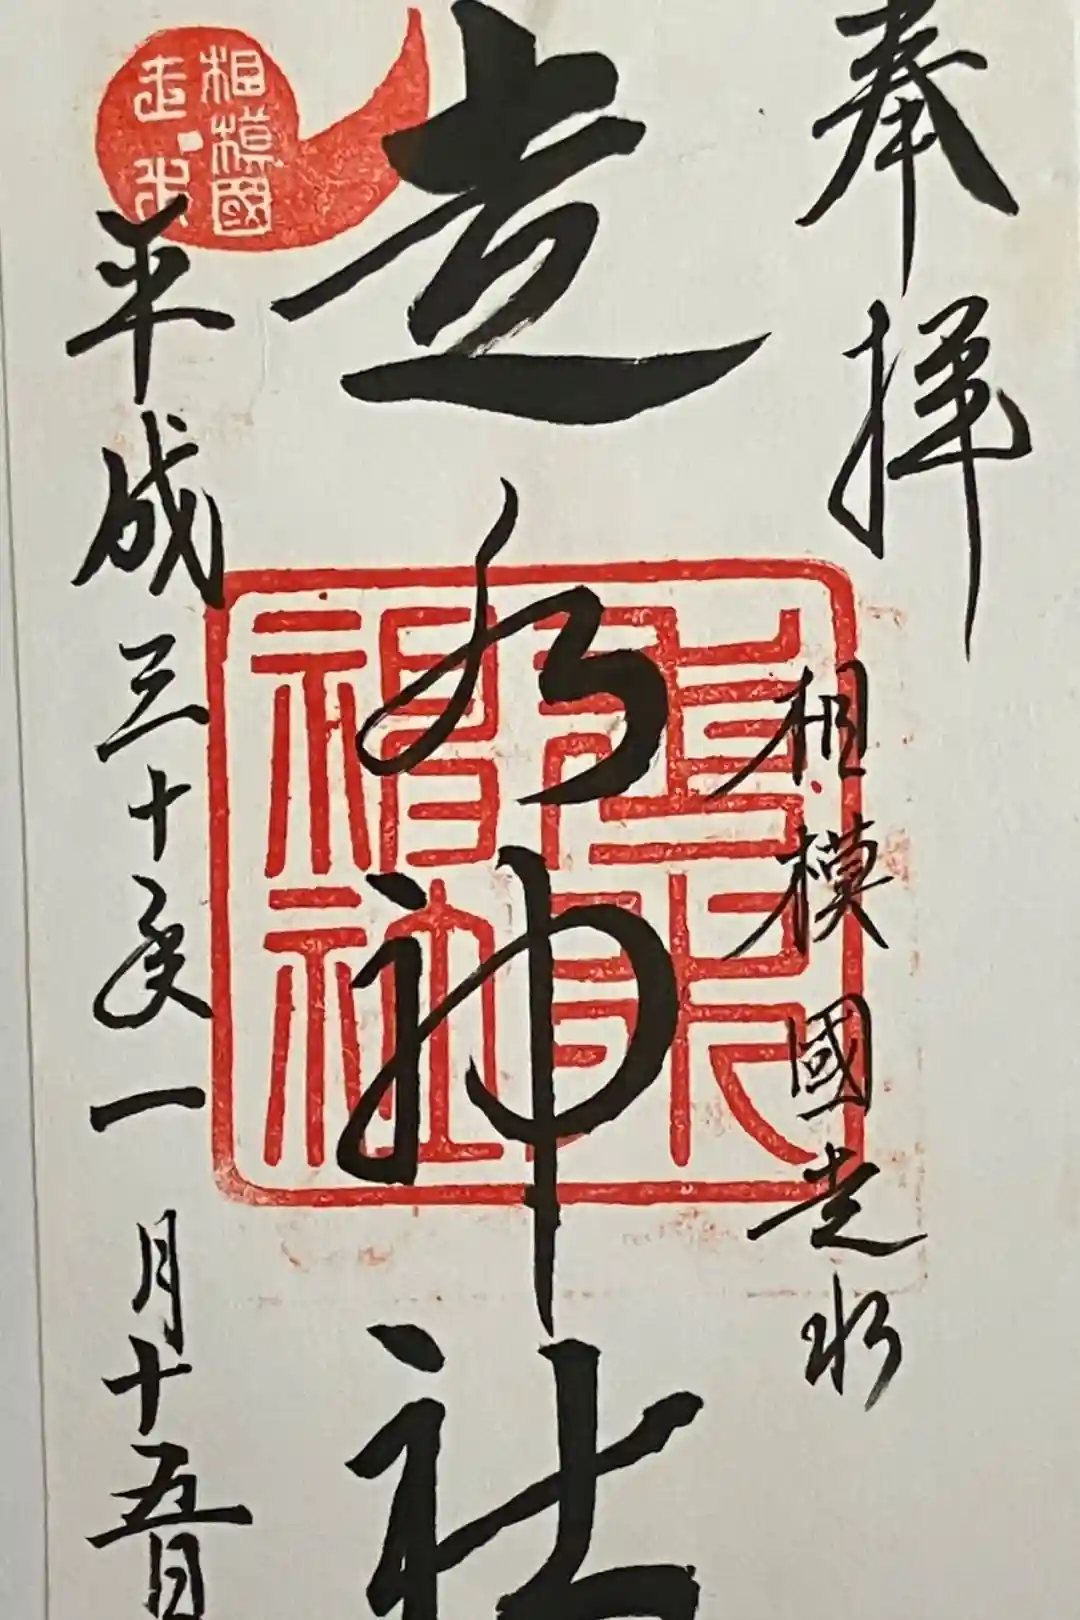 奉拝
相模國走水
走水神社
平成三十年一月十五日
相模國
走水
走水
神社